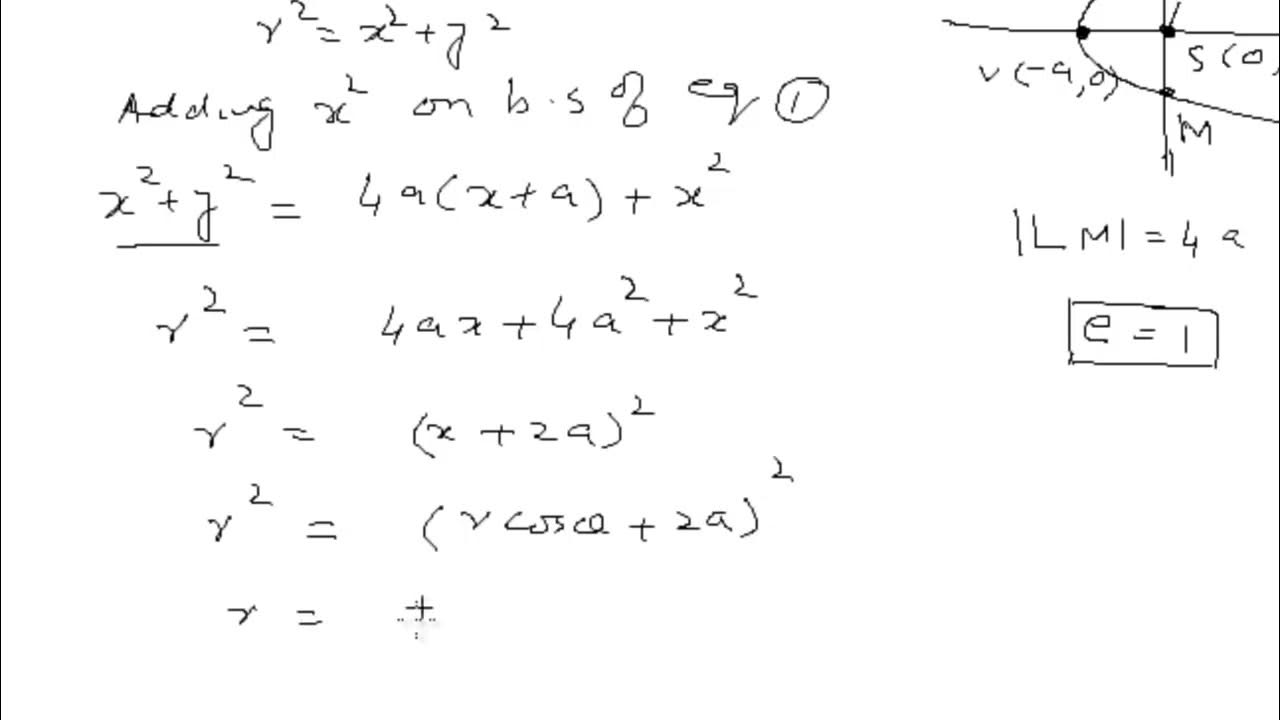 r² = x² + y²
Adding x² on b.s of eq ①
x² + y² = 4a(x+a) + x²
r² = 4ax + 4a² + x²
r² = (x + 2a)²
r² = (r cosθ + 2a)²
r = ±
V(-a,0)
S(0,
M
|LM| = 4a
e = 1